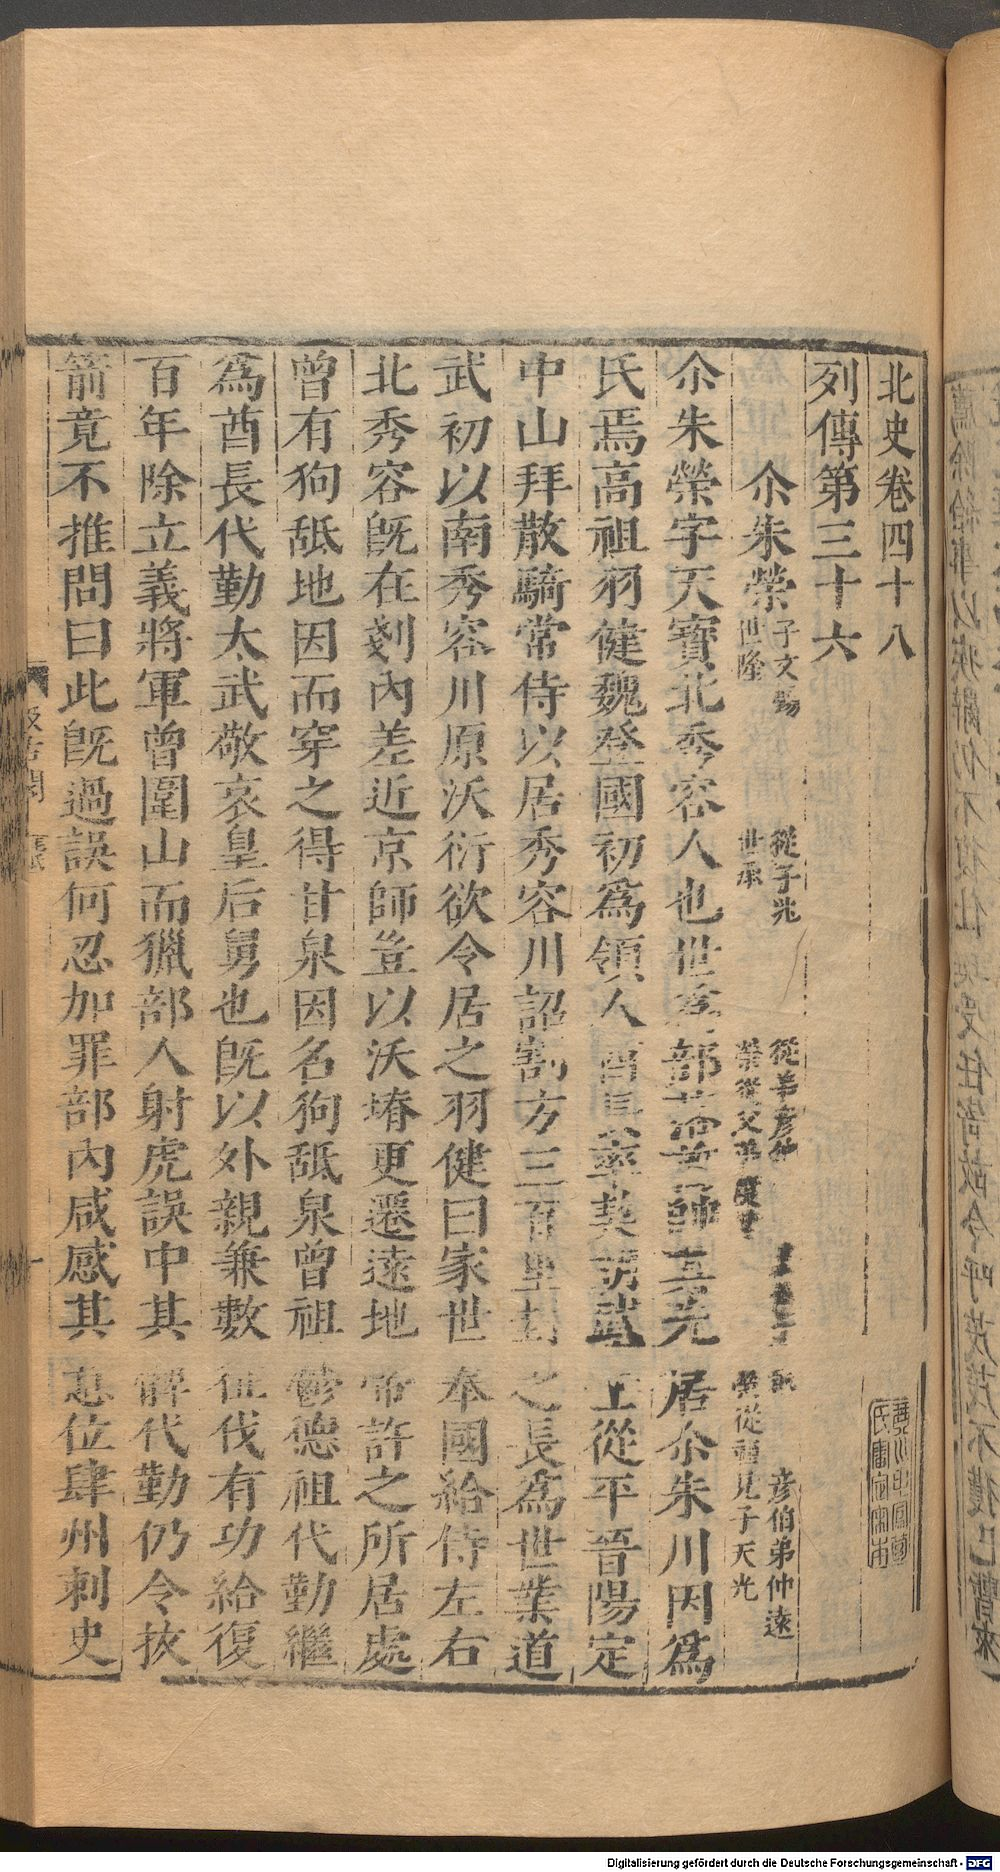 北史卷四十八
列傳第三十六
尒朱榮
子文暢
世隆
從子兆
世承
從弟彥伯
榮從父弟度律
彥伯弟仲遠
榮從祖兄子天光
尒朱榮字天寶北秀容人也世為部落酋帥其先居尒朱川因爲
氏焉高祖羽健魏登國初爲領人酋長率契胡武士從平晉陽定
中山拜散騎常侍以居秀容川詔割方三百里封之長爲世業道
武初以南秀容川原沃衍欲令居之羽健曰家世奉國給侍左右
北秀容旣在剗內差近京師豈以沃塉更遷遠地帝許之所居處
曾有狗舐地因而穿之得甘泉因名狗舐泉曾祖鬱德祖代勤繼
爲酋長代勤太武敬哀皇后舅也旣以外親兼數征伐有功給復
百年除立義將軍曾圍山而獵部人射虎誤中其髀代勤仍令拔
箭竟不推問曰此旣過誤何忍加罪部內咸感其意位肆州刺史
汲古閣
Digitalisierung gefördert durch die Deutsche Forschungsgemeinschaft - DFG